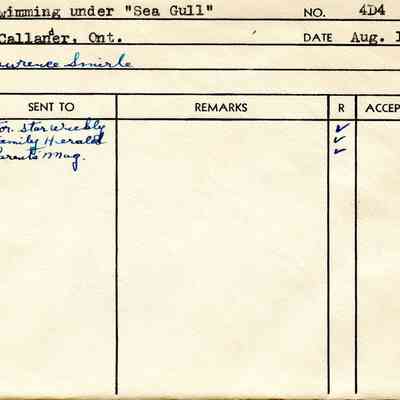 wimming under "Sea Gull" NO. 4D4
Callander, Ont. DATE Aug. 1
awrence Smirle
SENT TO REMARKS R ACCEP
or. Star Weekly ✓
amily Herald ✓
arents Mag. ✓